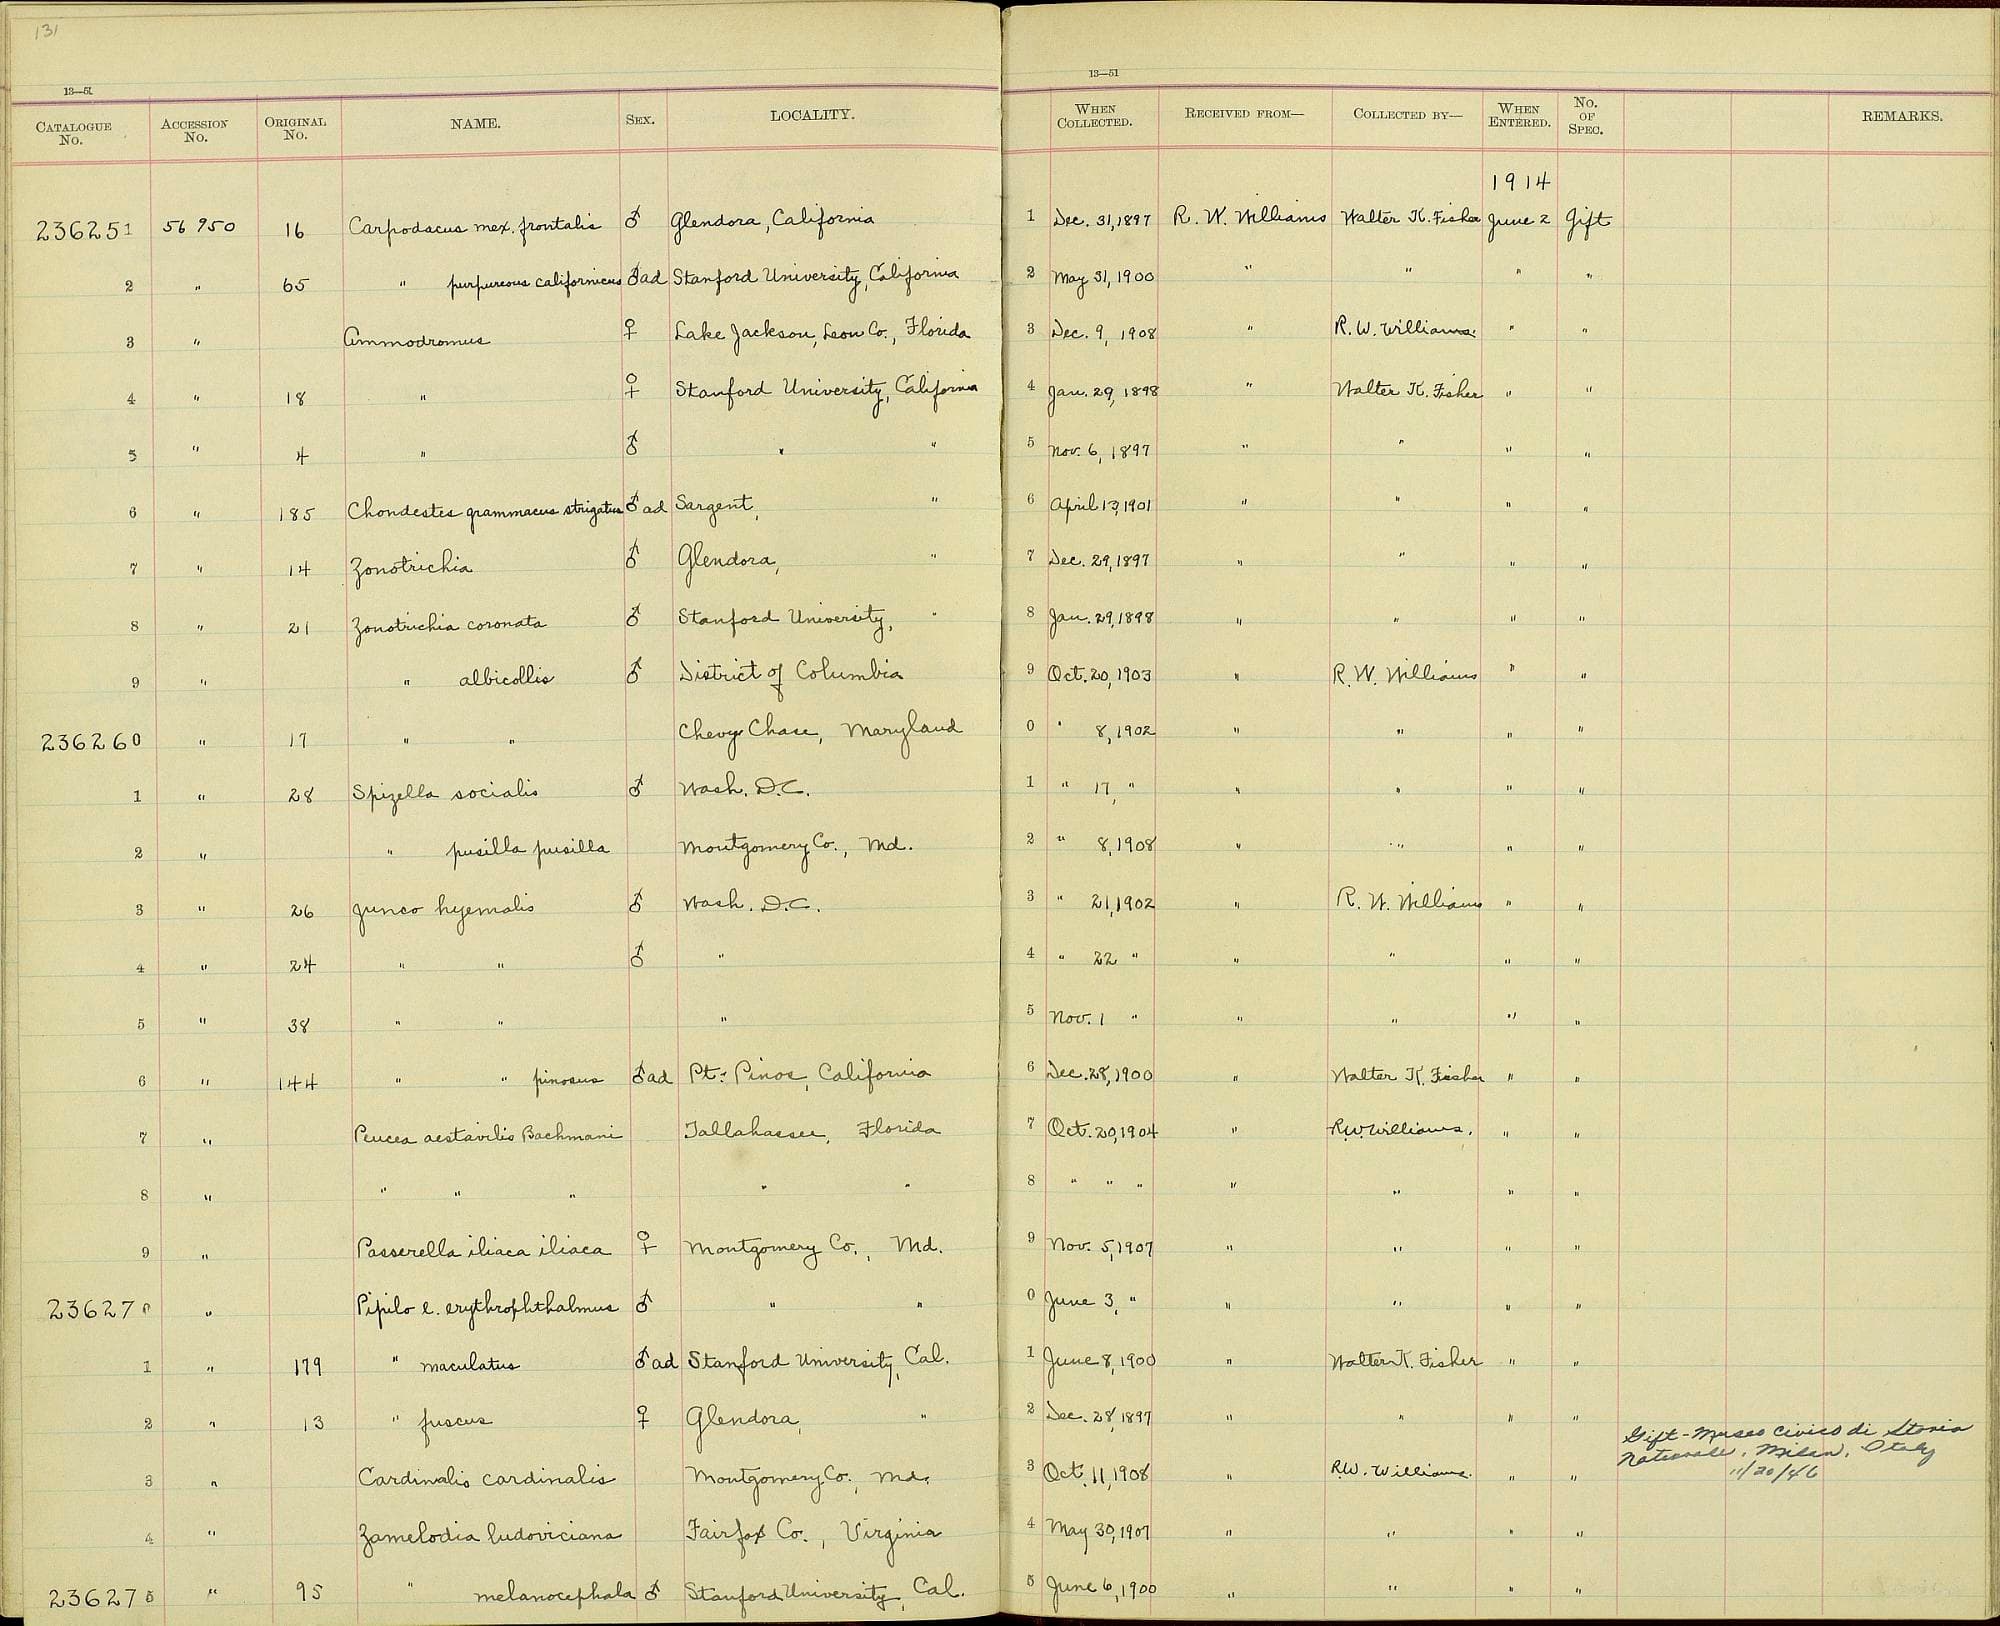 131
13—51
13—51
CATALOGUE No. ACCESSION No. ORIGINAL No. NAME. SEX. LOCALITY. WHEN COLLECTED. RECEIVED FROM— COLLECTED BY— WHEN ENTERED. No. OF SPEC. REMARKS.
1914
236251 56950 16 Carpodacus mex. frontalis ♂ Glendora, California 1 Dec. 31, 1897 R. W. Williams Walter K. Fisher June 2 Gift
2 " 65 " purpureous californicus ♂ad Stanford University, California 2 May 31, 1900 " " " "
3 " Ammodromus ♀ Lake Jackson, Leon Co., Florida 3 Dec. 9, 1908 " R. W. Williams. " "
4 " 18 " ♀ Stanford University, California 4 Jan. 29, 1898 " Walter K. Fisher " "
5 " 4 " ♂ " " 5 Nov. 6, 1897 " " " "
6 " 185 Chondestes grammacus strigatus ♂ad Sargent, " 6 April 13, 1901 " " " "
7 " 14 Zonotrichia ♂ Glendora, " 7 Dec. 29, 1897 " " " "
8 " 21 Zonotrichia coronata ♂ Stanford University, " 8 Jan. 29, 1898 " " " "
9 " " albicollis ♂ District of Columbia 9 Oct. 20, 1903 " R. W. Williams " "
236260 " 17 " " Chevy Chase, Maryland 0 " 8, 1902 " " " "
1 " 28 Spizella socialis ♂ Wash. D.C. 1 " 17, " " " " "
2 " " pusilla pusilla Montgomery Co., Md. 2 " 8, 1908 " " " "
3 " 26 Junco hyemalis ♂ Wash. D.C. 3 " 21, 1902 " R. W. Williams " "
4 " 24 " " ♂ " 4 " 22 " " " " "
5 " 38 " " " 5 Nov. 1 " " " " "
6 " 144 " " pinosus ♂ad Pt. Pinos, California 6 Dec. 28, 1900 " Walter K. Fisher " "
7 " Peucea aestavilis Bachmani Tallahassee, Florida 7 Oct. 20, 1904 " R.W. Williams. " "
8 " " " " " " 8 " " " " " " "
9 " Passerella iliaca iliaca ♀ Montgomery Co., Md. 9 Nov. 5, 1907 " " " "
236270 " Pipilo e. erythrophthalmus ♂ " " 0 June 3, " " " " "
1 " 179 " maculatus ♂ad Stanford University, Cal. 1 June 8, 1900 " Walter K. Fisher " "
2 " 13 " fuscus ♀ Glendora, " 2 Dec. 28, 1897 " " " "
Gift - Museo Civico di Storia
3 " Cardinalis cardinalis Montgomery Co., Md. 3 Oct. 11, 1908 " R.W. Williams. " " Naturale, Milan, Italy
11/20/46
4 " Zamelodia ludoviciana Fairfax Co., Virginia 4 May 30, 1907 " " " "
236275 " 95 " melanocephala ♂ Stanford University, Cal. 5 June 6, 1900 " " " "